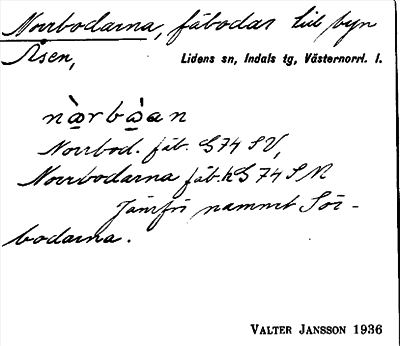 Norrbodarna, fäbodar till byn
Åsen,
Lidens sn, Indals tg, Västernorrl. l.
nòrbòan
Norrbod. fäb. G74 SV,
Norrbodarna fäb. h G74 SN
Jämför namnet Sör-
bodarna.
VALTER JANSSON 1936